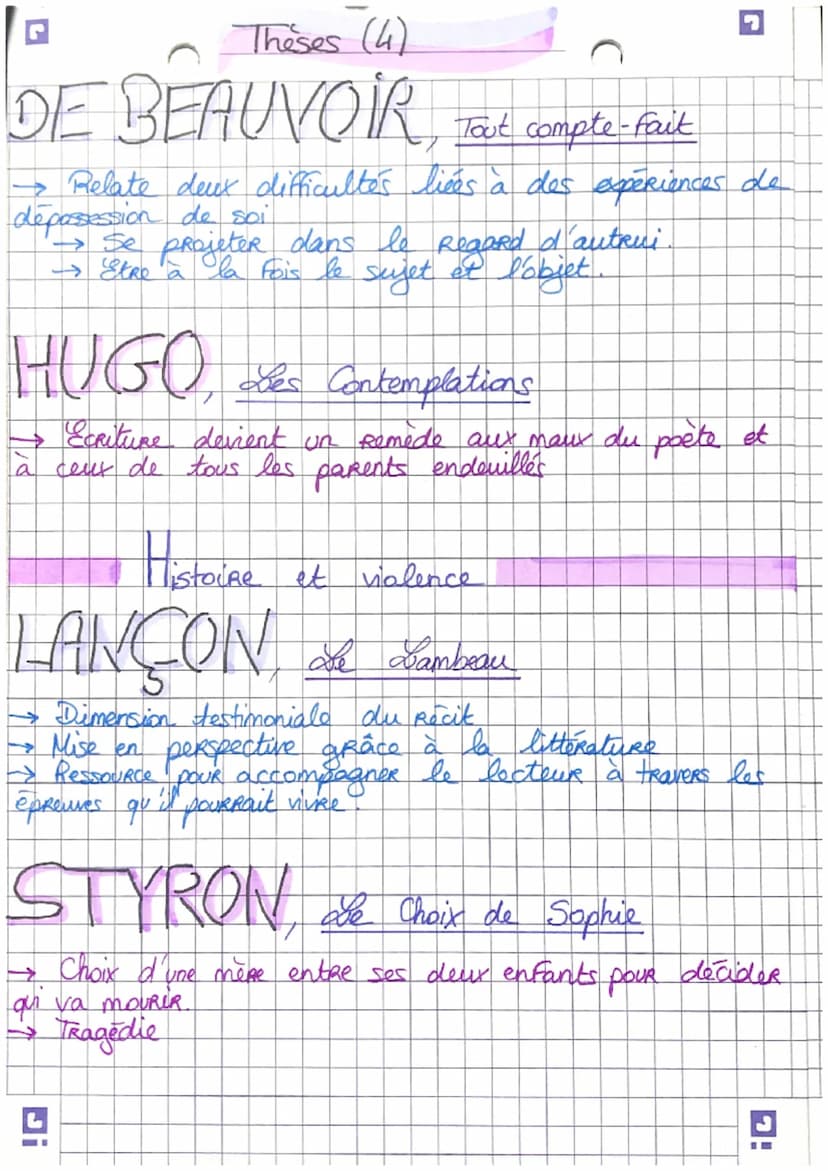 Thèses (4)
DE BEAUVOIR, Tout compte-fait
→ Relate deux difficultés liées à des expériences de
dépossession de soi
→ Se projeter dans le regard d'autrui.
→ Être à la fois le sujet et l'objet.
HUGO, Les Contemplations
→ Ecriture devient un remède aux maux du poète et
à ceux de tous les parents endeuillés
Histoire et violence
LANÇON, Le Lambeau
→ Dimension testimoniale du récit
→ Mise en perspective grâce à la littérature
→ Ressource pour accompagner le lecteur à travers les
épreuves qu'il pourrait vivre.
STYRON, Le Choix de Sophie
→ Choix d'une mère entre ses deux enfants pour décider
qui va mourir.
→ Tragédie